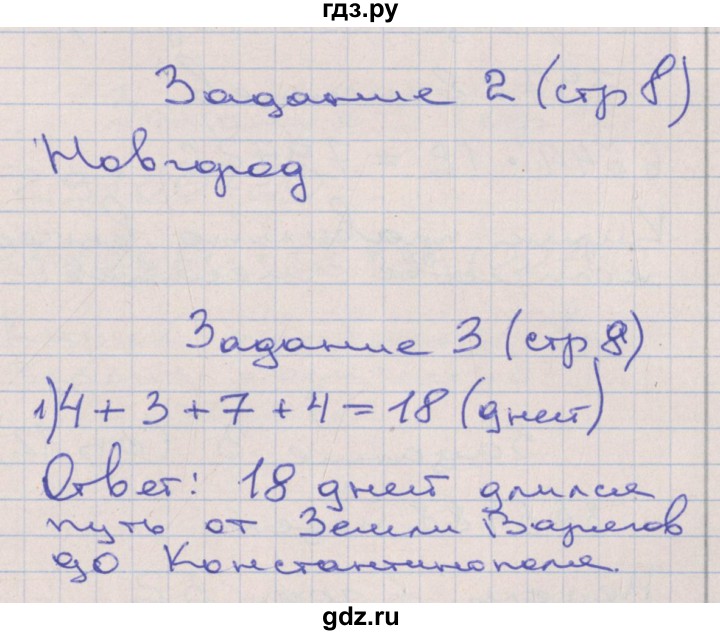 гдз.ру
Задание 2 (стр 8)
Новгород
Задание 3 (стр 8)
1) 4 + 3 + 7 + 4 = 18 (дней)
Ответ: 18 дней длился
путь от Земли Варягов
до Константинополя.
gdz.ru